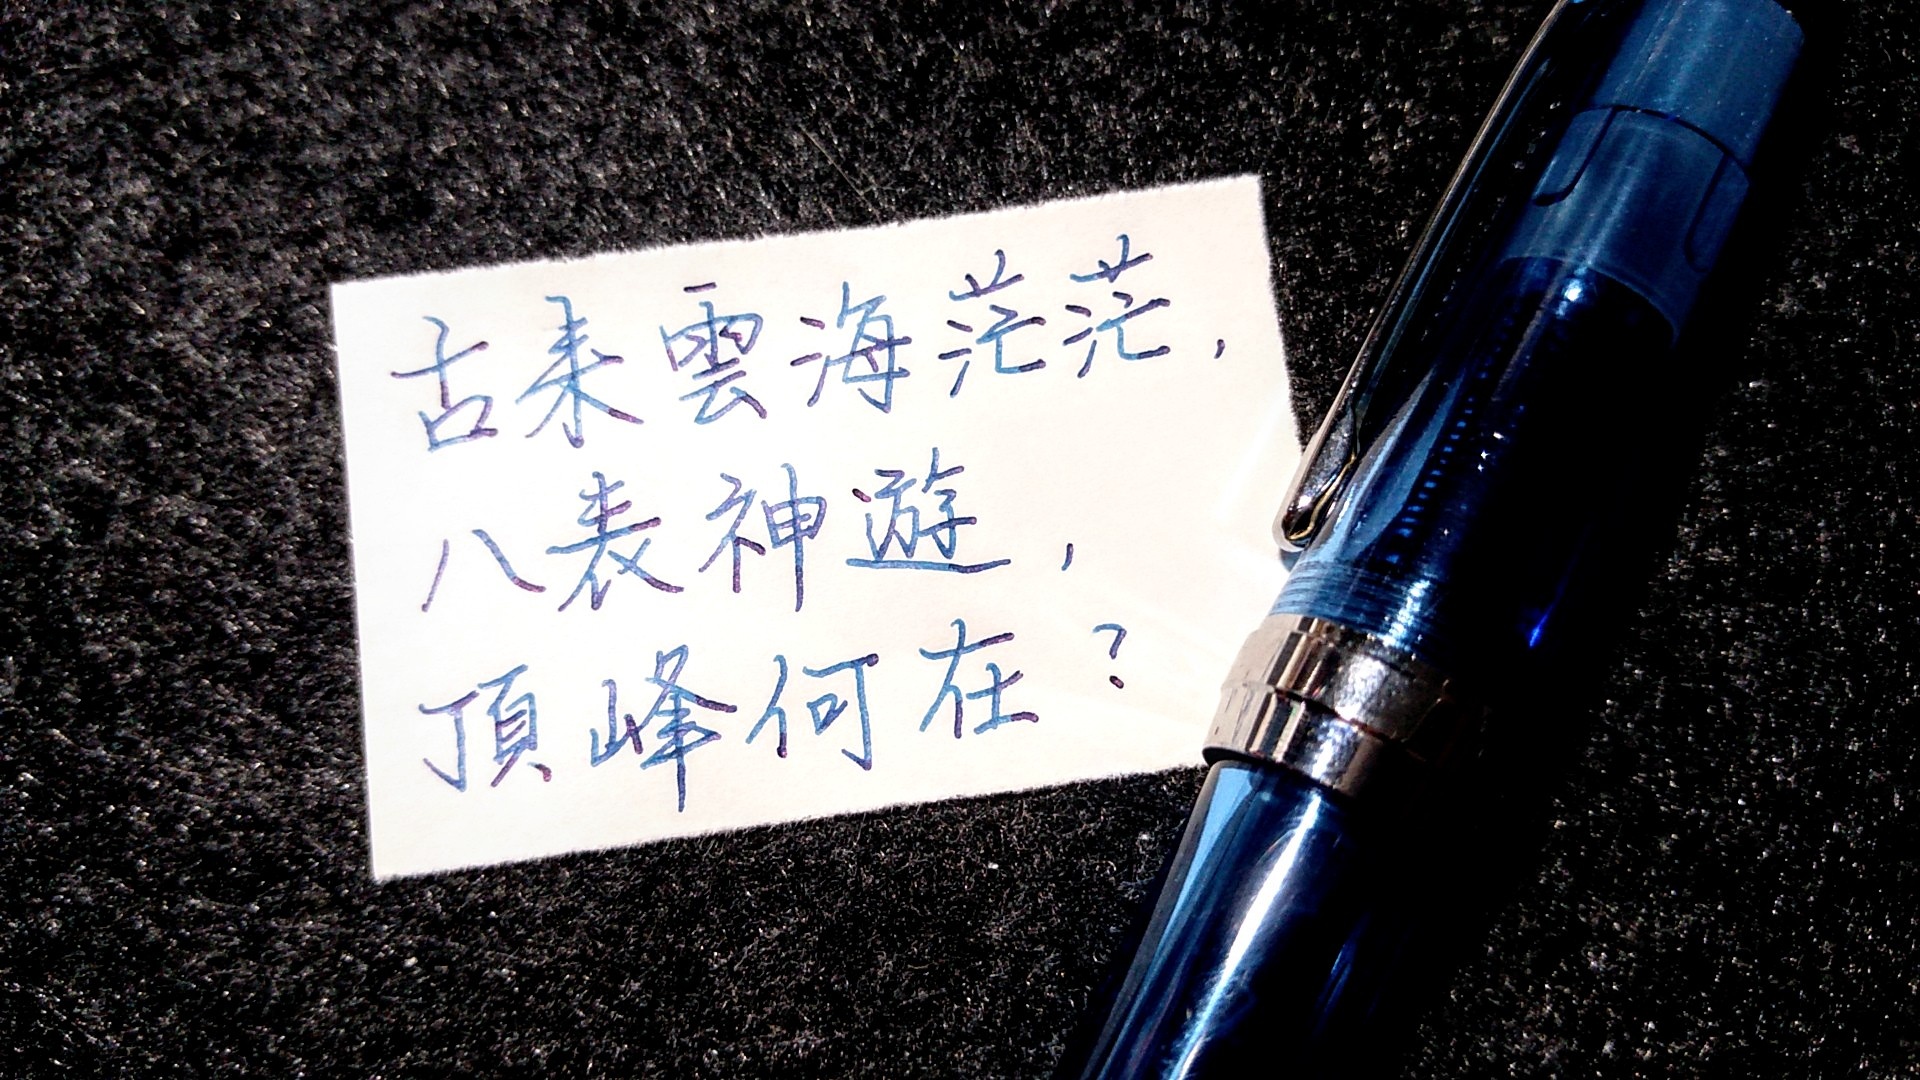 古来雲海茫茫，
八表神遊，
頂峰何在？